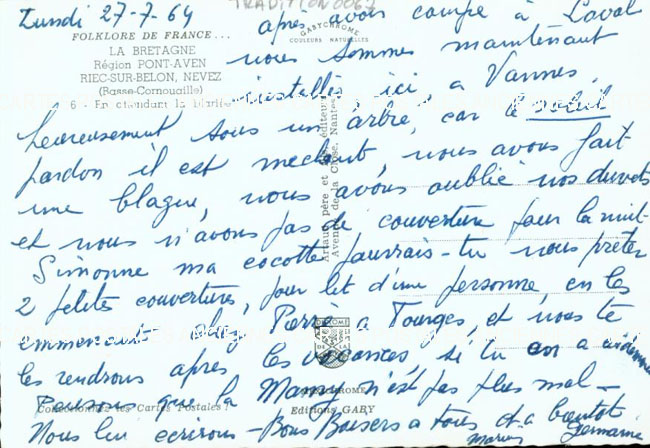 Lundi 27-7-64
TRADITION0067
FOLKLORE DE FRANCE...
LA BRETAGNE
Région PONT-AVEN
RIEC-SUR-BELON, NEVEZ
(Basse-Cornouaille)
6 - En attendant la Mariée
GABYCHROME
COULEURS NATURELLES
après avoir campé à Laval
nous sommes maintenant
installés ici, a Vannes,
heureusement sous un arbre, car le soleil
pardon il est mechant, nous avons fait
une blague, nous avons oublié nos duvets
et nous n'avons pas de couverture pour la nuit-
Simonne ma cocotte pourrais-tu nous prêter
2 petites couvertures, pour lit d'une personne, en les
emmenant chez Pierre a Tourges, et nous te
les rendrons apres les vacances, si tu a
Pensons que la Mamy n'est pas plus mal-
Nous lui ecrirons - Bons Baisers a tous et a bientot
Marius Germaine
Artaud père et fils, éditeurs
Avenue de la Close, Nantes
Collectionnez les Cartes Postales !
Editions GABY